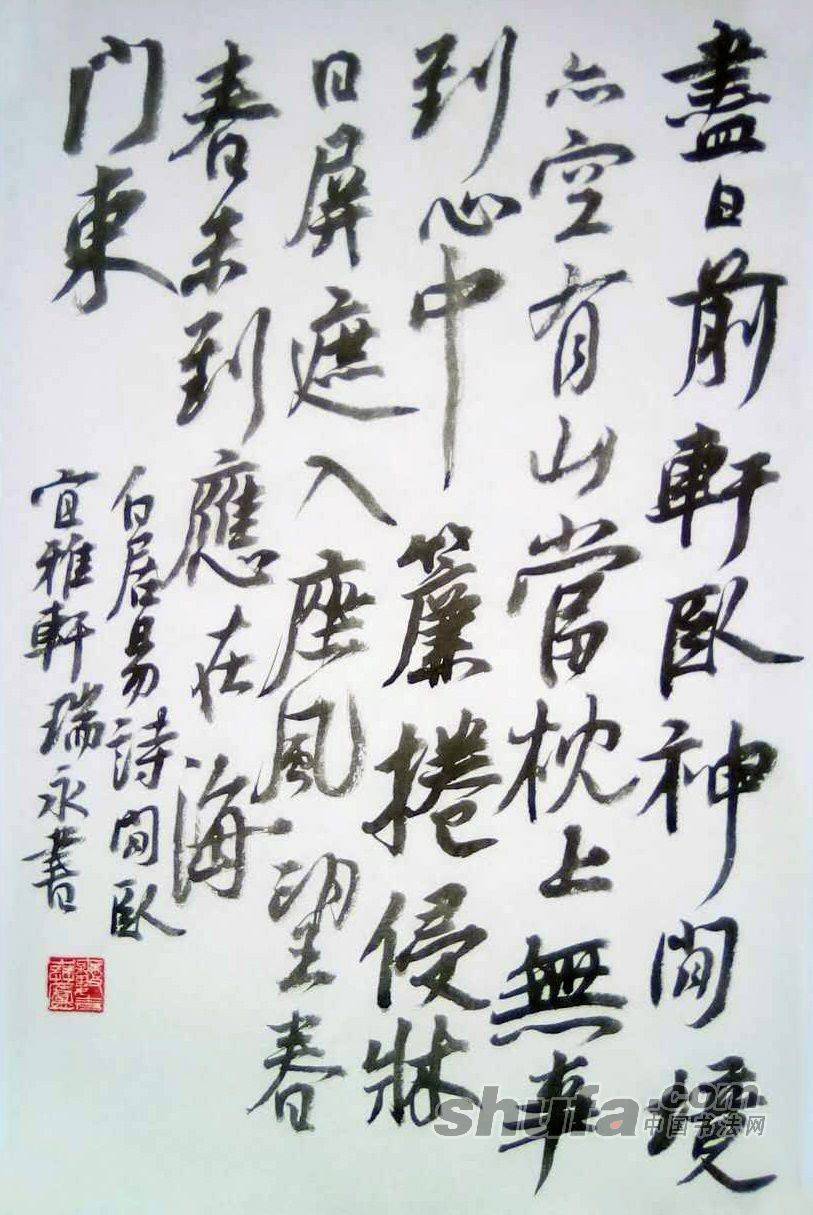 盡日前軒臥神閒境
亦空有山當枕上無事
到心中簾捲侵牀
日屏遮入座風望春
春未到應在海
门東
白居易詩閒臥
宜雅軒瑞永書
shufa.com
中国书法网